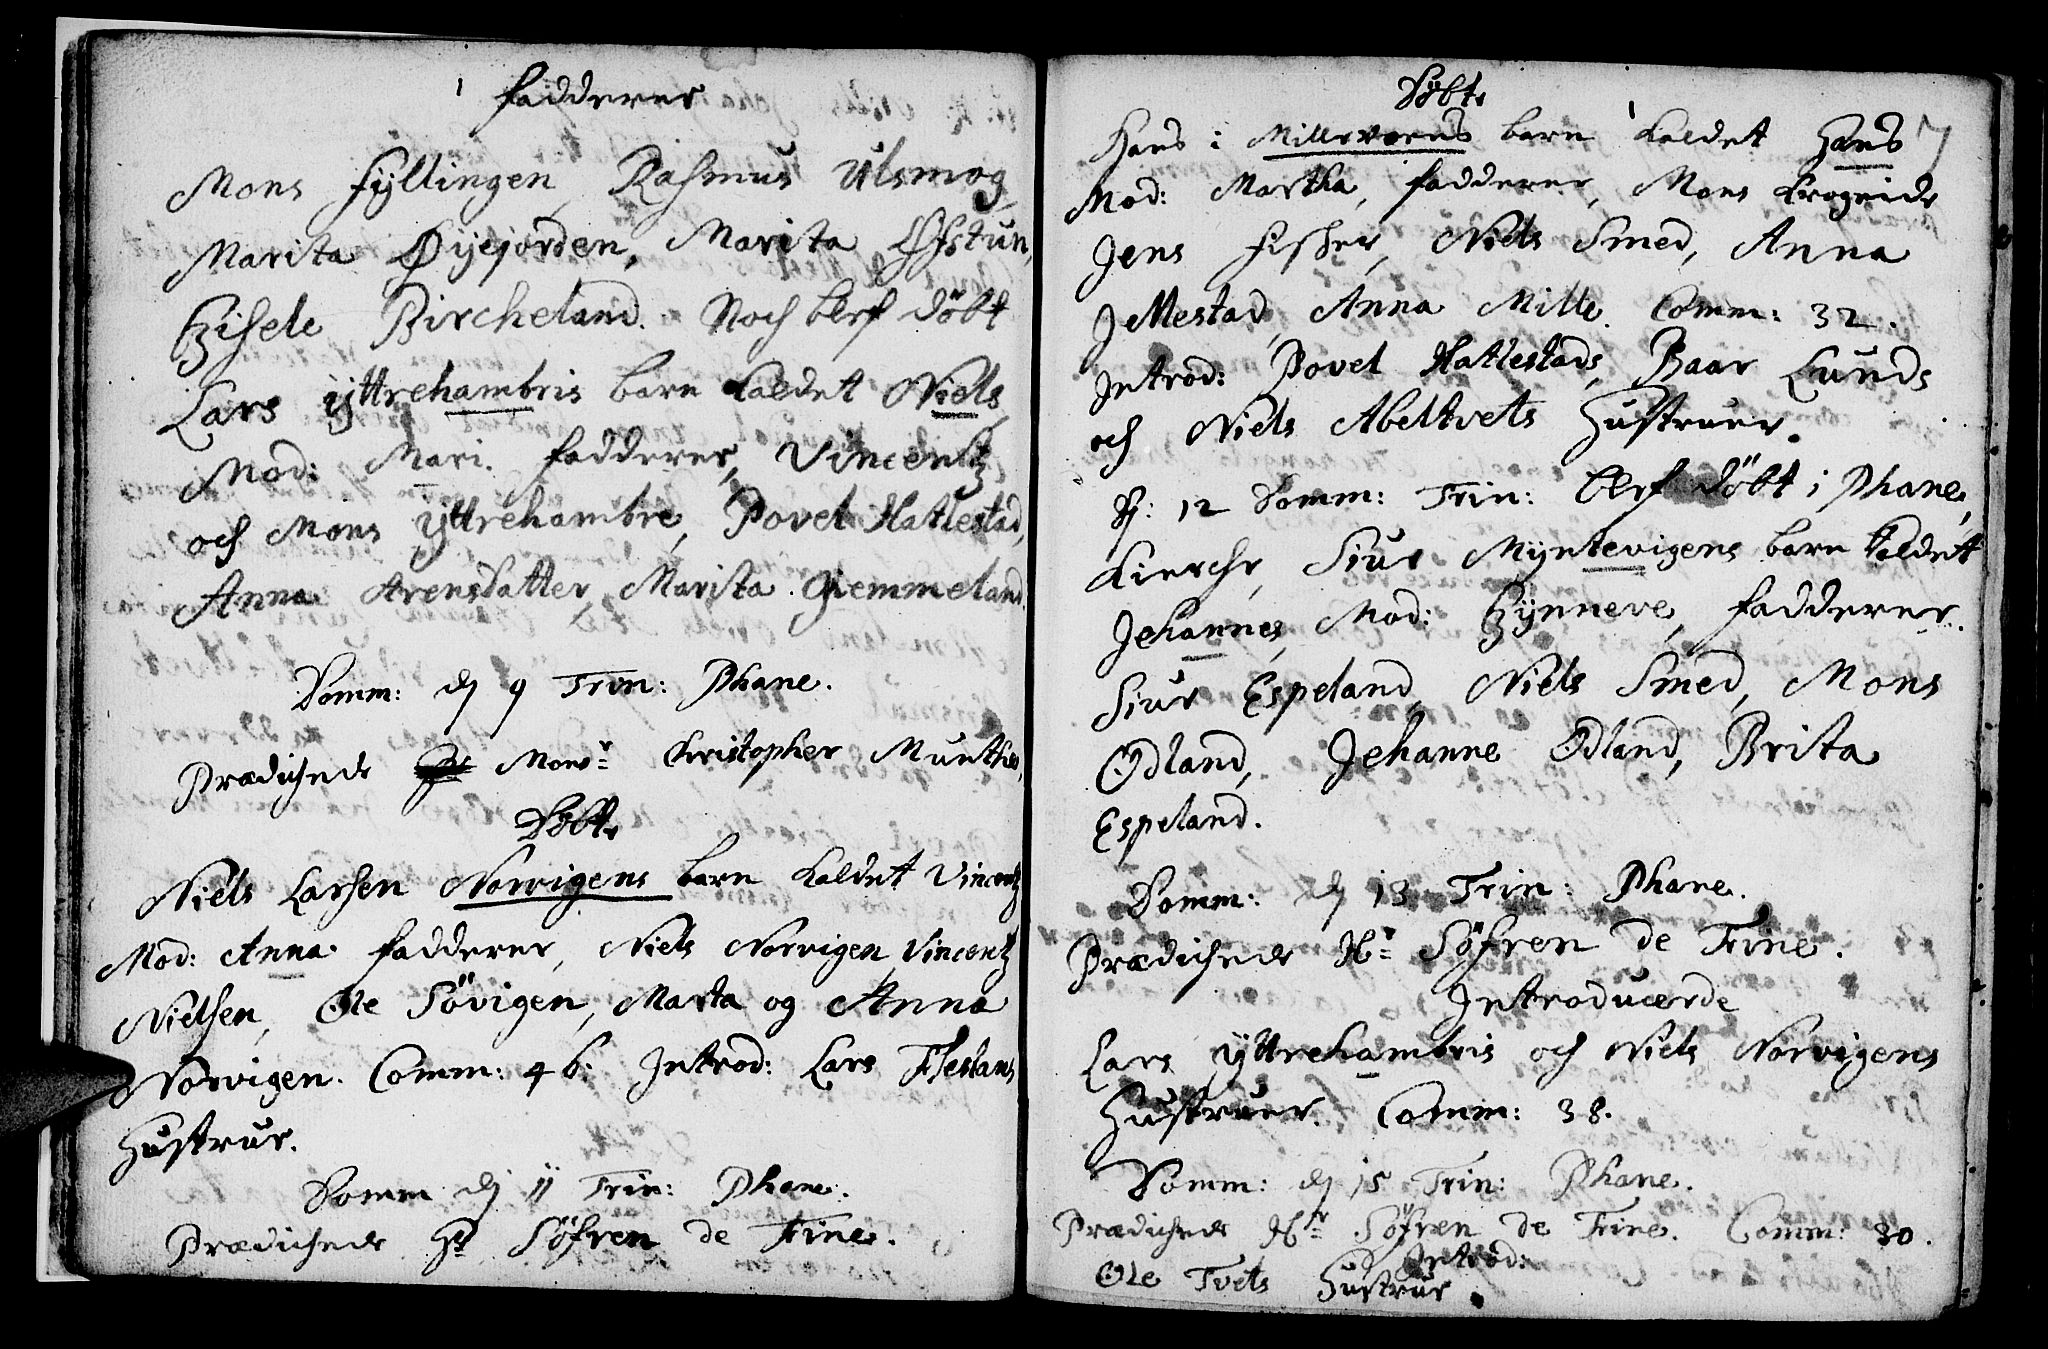 Fadderer
Mons Fyllingen, Rasmus Ulsmog,
Marita Øyejorden, Marita Øfstun,
Gisele Bircheland. Noch blef döbt
Lars Yttrehambris barn kaldet Niels,
Mod: Mari. Fadderer, Vincentz
och Mons Yttrehambre, Povel Hatlestad,
Anna Arensdatter, Marita Giemmeland.
Domm: dj 9 Trin: Phane.
Prædichede Monsr Christopher Munthe,
Döbte
Niels Larsen Norvigens barn kaldet Vincentz
Mod: Anna. Fadderer, Niels Norvigen, Vincentz
Nielsen, Ole Sövigen, Marta og Anna
Norvigen. Comm: 46. Introd: Lars Fleslans
Hustrue.
Domm dj 11 Trin: Phane.
Prædichede Hr Söfren de Fine.
Döbte
Hans i Millevaens barn kaldet Hans 7
Mod: Martha, Fadderer, Mons Krogeide
Jens Fisker, Niels Smed, Anna
Jllestad, Anna Mille. Comm: 32.
Introd: Povel Hatlestads, Baar Lunds
och Niels Abeltvets Hustruer.
Dj: 12 Domm: Trin: blef döbt i Phane
Kierche, Siur Myntevigens barn kaldet
Jehannes, Mod: Gynneve, Fadderer.
Siur Espeland, Niels Smed, Mons
Ødland, Jehanne Ødland, Brita
Espeland.
Domm: dj 13 Trin: Phane.
Prædichede Hr Söfren de Fine.
Introducerde
Lars Yttrehambris och Niels Norvigens
Hustruer. Comm: 38.
Domm: dj 15 Trin: Phane.
Prædichede Hr Söfren de Fine. Comm: 30.
Introd:
Ole Tvets Hustrue.